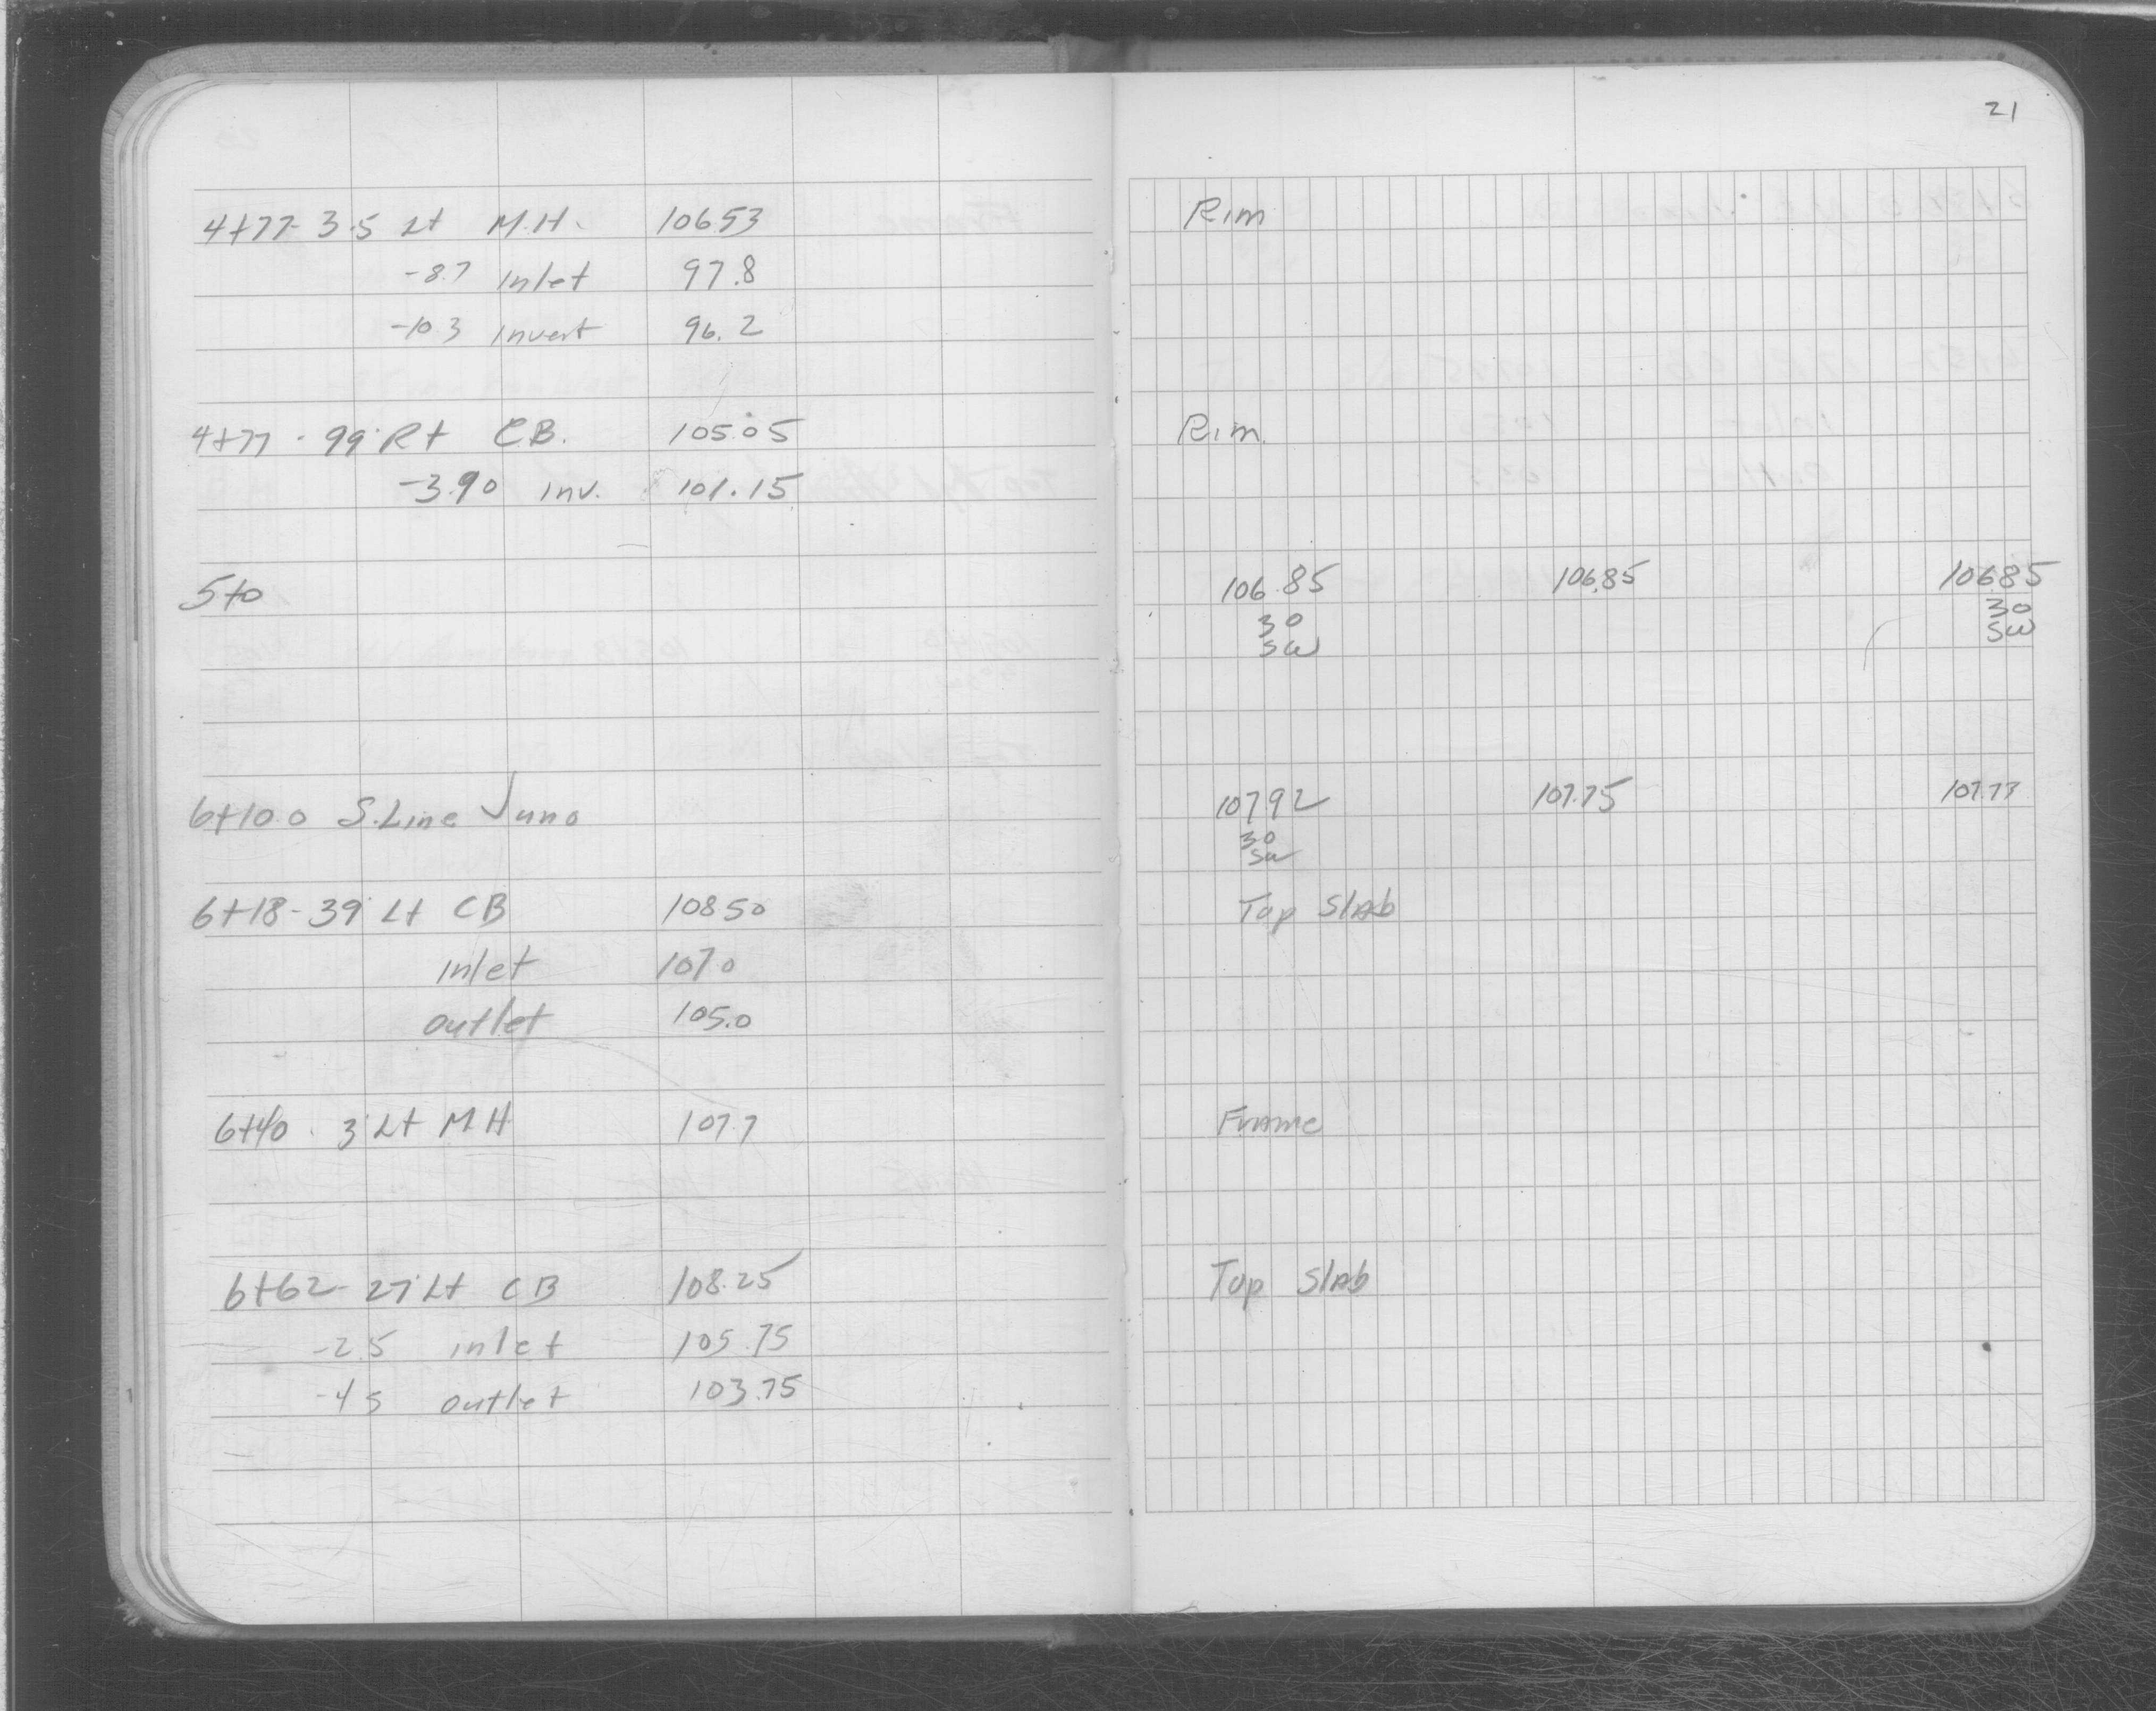 21
4+77- 3.5 Lt M.H. 106.53 Rim
-8.7 Inlet 97.8
-10.3 Invert 96.2
4+77 - 99' Rt C.B. 105.05 Rim
-3.90 Inv. 101.15
5+0 106.85 106.85 106.85
30 30
SW SW
6+10.0 S.Line Juno 107.92 107.75 107.77
30
SW
6+18- 39' Lt CB 108.50 Top Slab
Inlet 107.0
outlet 105.0
6+40 - 3' Lt M H 107.7 Frame
6+62- 27' Lt CB 108.25 Top Slab
-2.5 inlet 105.75
-4.5 outlet 103.75